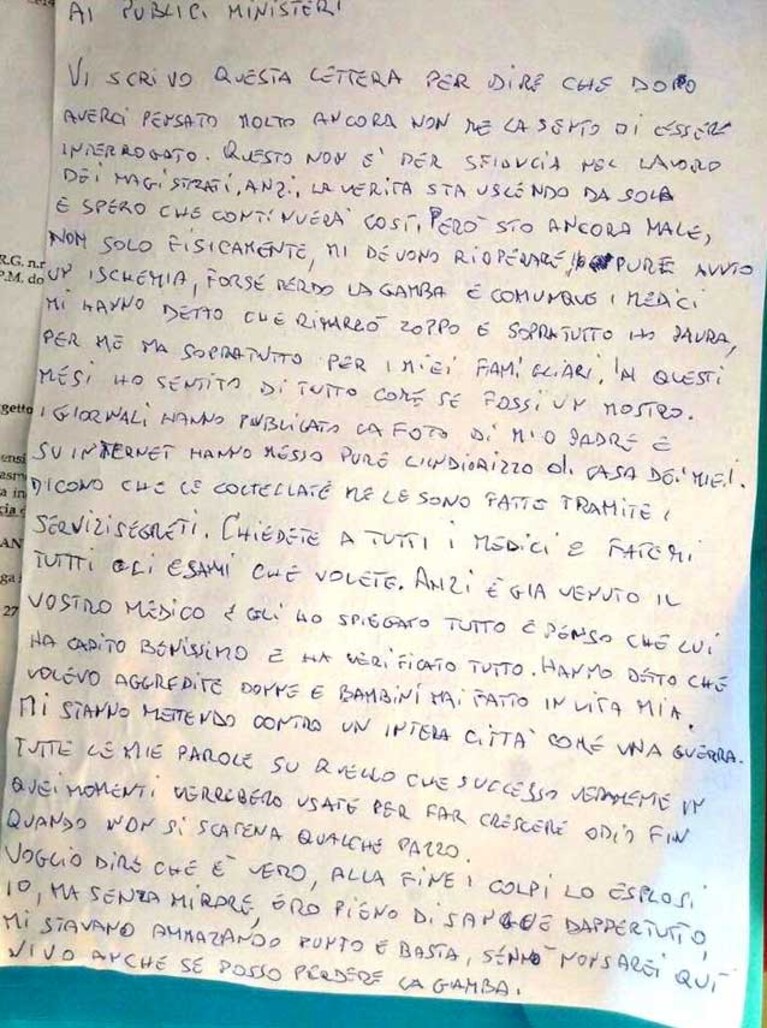 AI PUBLICI MINISTERI
VI SCRIVO QUESTA LETTERA PER DIRE CHE DOPO
AVERCI PENSATO MOLTO ANCORA NON ME LA SENTO DI ESSERE
INTERROGATO. QUESTO NON E' PER SFIDUCIA NEL LAVORO
DEI MAGISTRATI, ANZI, LA VERITA STA USCENDO DA SOLA
E SPERO CHE CONTINUERA' COSI, PERO' STO ANCORA MALE,
NON SOLO FISICAMENTE, MI DEVONO RIOPERARE, PURE AVUTO
R.G. n.r
P.M. do
UN ISCHEMIA, FORSE PERDO LA GAMBA E COMUNQUE I MEDICI
MI HANNO DETTO CHE RIMARRO' ZOPPO E SOPRATUTTO HO PAURA,
PER ME MA SOPRATUTTO PER I MIEI FAMIGLIARI. IN QUESTI
MESI HO SENTITO DI TUTTO COME SE FOSSI UN MOSTRO.
getto
I GIORNALI HANNO PUBLICATO LA FOTO DI MIO PADRE E
SU INTERNET HANNO MESSO PURE L'INDIRIZZO DI CASA DEI MIEI.
ensi
DICONO CHE LE COLTELLATE ME LE SONO FATTE TRAMITE I
a in
SERVIZI SEGRETI. CHIEDETE A TUTTI I MEDICI E FATEMI
AN
TUTTI GLI ESAMI CHE VOLETE. ANZI E GIA VENUTO IL
ga
27
VOSTRO MEDICO E GLI HO SPIEGATO TUTTO E PENSO CHE LUI
HA CAPITO BENISSIMO E HA VERIFICATO TUTTO. HANNO DETTO CHE
VOLEVO AGGREDITE DONNE E BAMBINI MAI FATTO IN VITA MIA.
MI STANNO METTENDO CONTRO UN INTERA CITTA' COME UNA GUERRA.
TUTTE LE MIE PAROLE SU QUELLO CHE SUCCESSO VERAMENTE IN
QUEI MOMENTI VERREBERO USATE PER FAR CRESCERE ODIO FIN
QUANDO NON SI SCATENA QUALCHE PAZZO.
VOGLIO DIRE CHE E' VERO, ALLA FINE I COLPI LO ESPLOSI
IO, MA SENZA MIRARE, ERO PIENO DI SANGUE DAPPERTUTTO,
MI STAVANO AMMAZANDO PUNTO E BASTA, SENNO' NON SAREI QUI'
VIVO ANCHE SE POSSO PERDERE LA GAMBA.